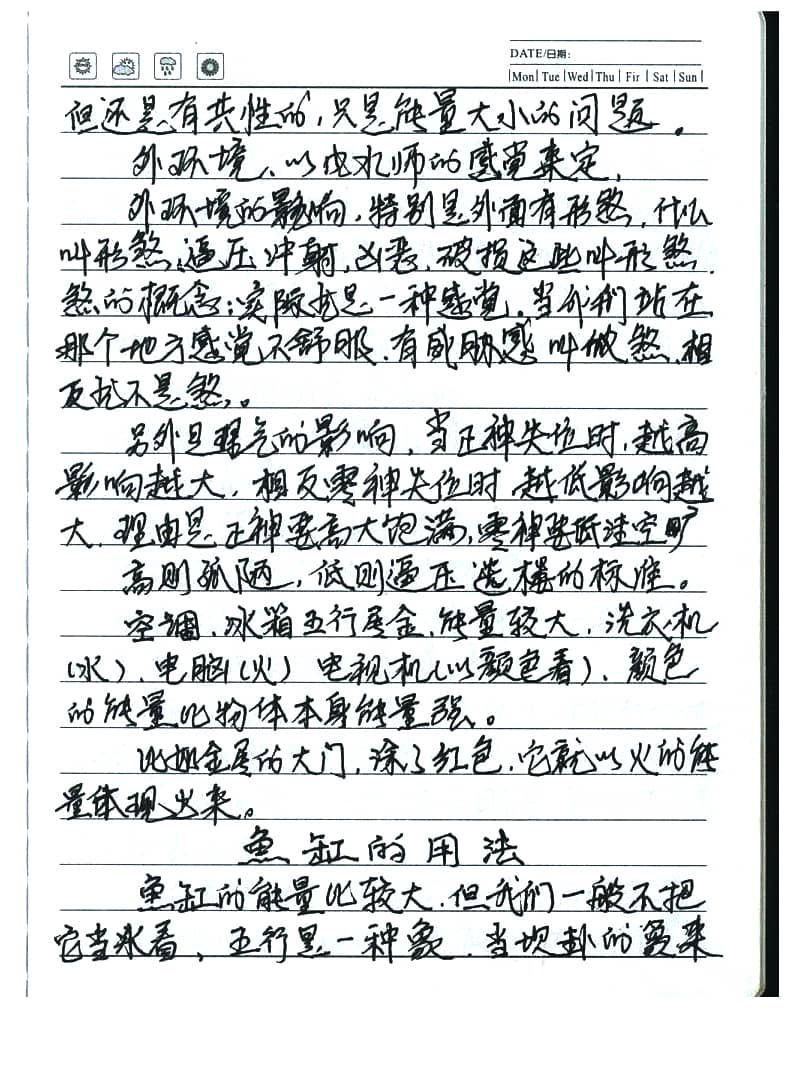 DATE/日期:
Mon Tue Wed Thu Fir Sat Sun
但还是有共性的,只是能量大小的问题。
外环境、以风水师的感觉来定,
外环境的影响,特别是外面有形煞,什么
叫形煞,逼压冲射,凶恶、破损这些叫形煞,
煞的概念;实际就是一种感觉,当我们站在
那个地方感觉不舒服、有威胁感叫做煞,相
反就不是煞。
另外且理气的影响,当正神失位时,越高
影响越大,相反零神失位时 越低影响越
大,理由是正神要高大饱满,零神要低洼空旷
高则孤陋,低则逼压 选楼的标准。
空调、冰箱五行居金、能量较大,洗衣机
(水)、电脑(火) 电视机(以颜色看)、颜色
的能量比物体本身能量强。
比如金属的大门,涂了红色,它就以火的能
量体现出来。
鱼缸的用法
鱼缸的能量比较大,但我们一般不把
它当水看,五行是一种象,当坎卦的象来